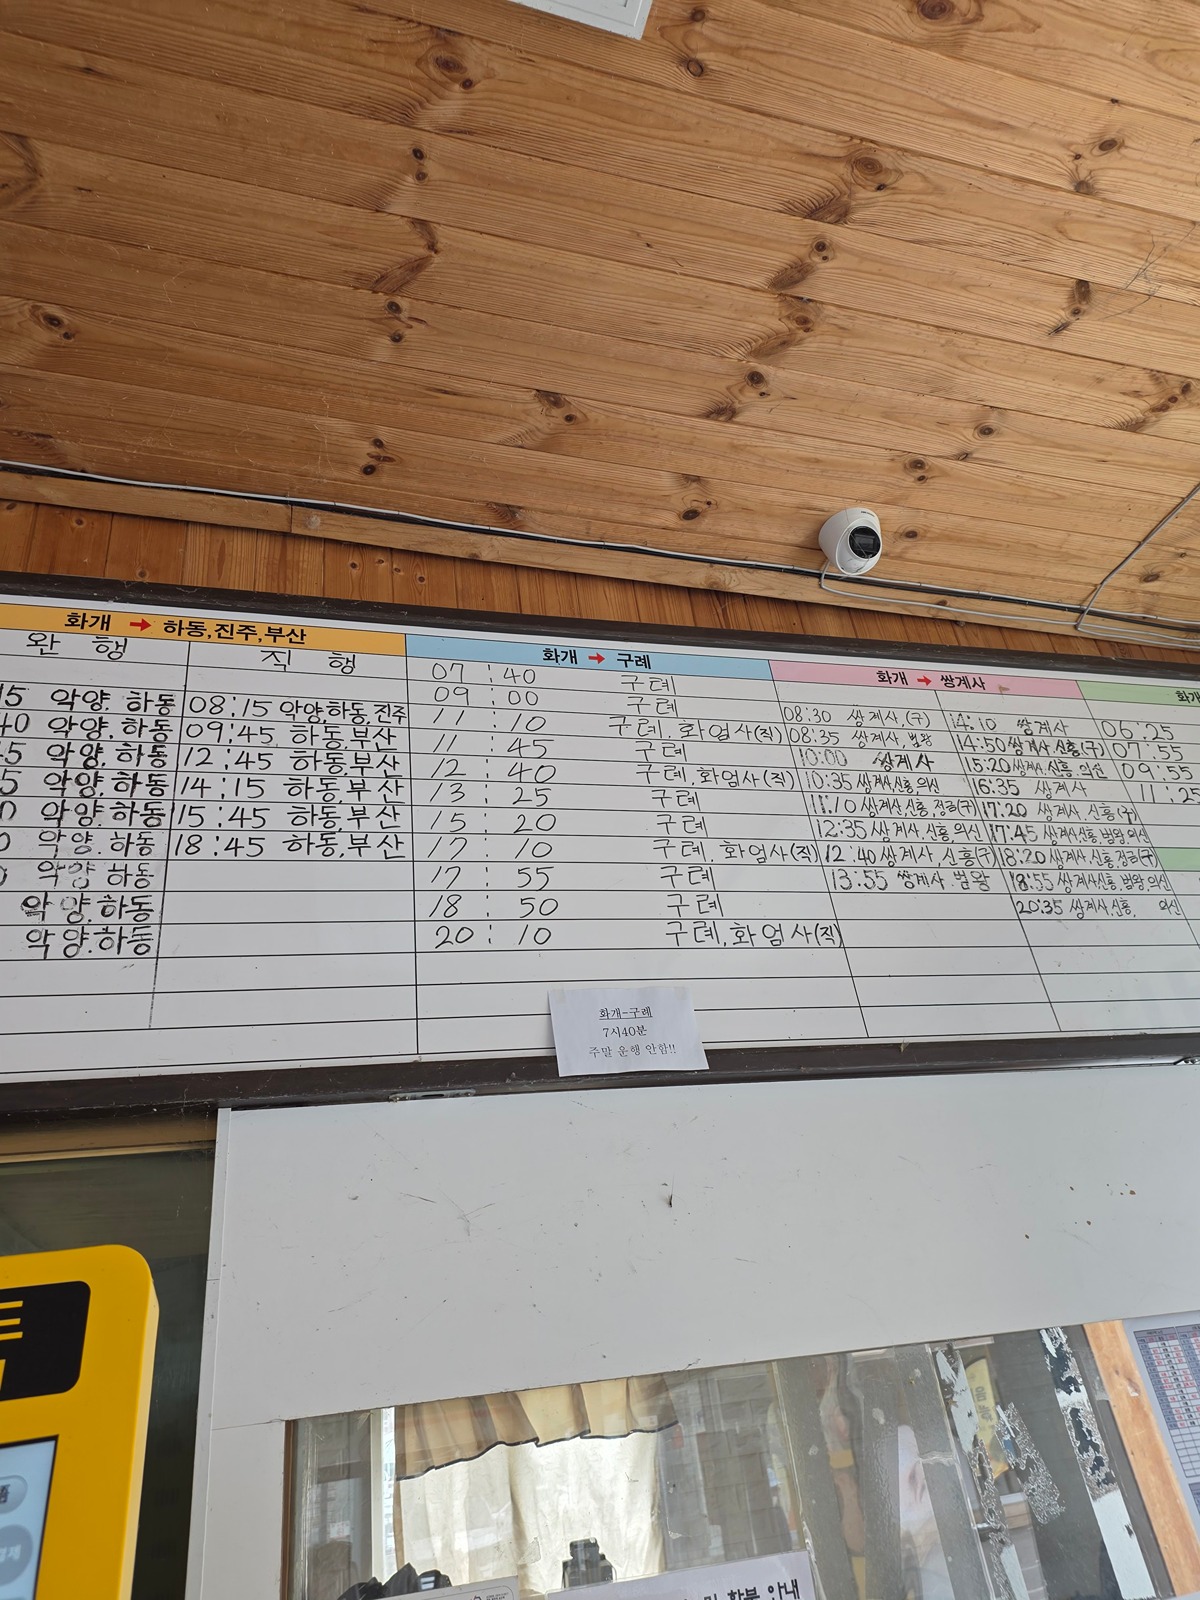 화개 → 하동,진주,부산
완 행
직 행
15 악양.하동
40 악양.하동
악양.하동
악양.하동
악양.하동
악양.하동
악양.하동
악양.하동
악양.하동
08:15 악양,하동,진주
09:45 하동.부산
12:45 하동.부산
14:15 하동.부산
15:45 하동.부산
18:45 하동.부산
화개 → 구례
07:40 구례
09:00 구례
11:10 구례.화엄사(직)
11:45 구례
12:40 구례.화엄사(직)
13:25 구례
15:20 구례
17:10 구례.화엄사(직)
17:55 구례
18:50 구례
20:10 구례.화엄사(직)
화개 → 쌍계사
08:30 쌍계사,(구)
08:35 쌍계사,범왕
10:00 쌍계사
10:35 쌍계사,신흥,의신
11:10 쌍계사,신흥,정금(구)
12:35 쌍계사,신흥,의신
12:40 쌍계사,신흥(구)
13:55 쌍계사.범왕
14:10 쌍계사
14:50 쌍계사,신흥(구)
15:20 쌍계사,신흥,의신
16:35 쌍계사
17:20 쌍계사,신흥(구)
17:45 쌍계사,신흥,범왕,의신
18:20 쌍계사,신흥,정금(구)
18:55 쌍계사,신흥,범왕,의신
20:35 쌍계사,신흥, 의신
화개
06:25
07:55
09:55
11:25
화개-구례
7시40분
주말 운행 안함!!
및 환불 안내